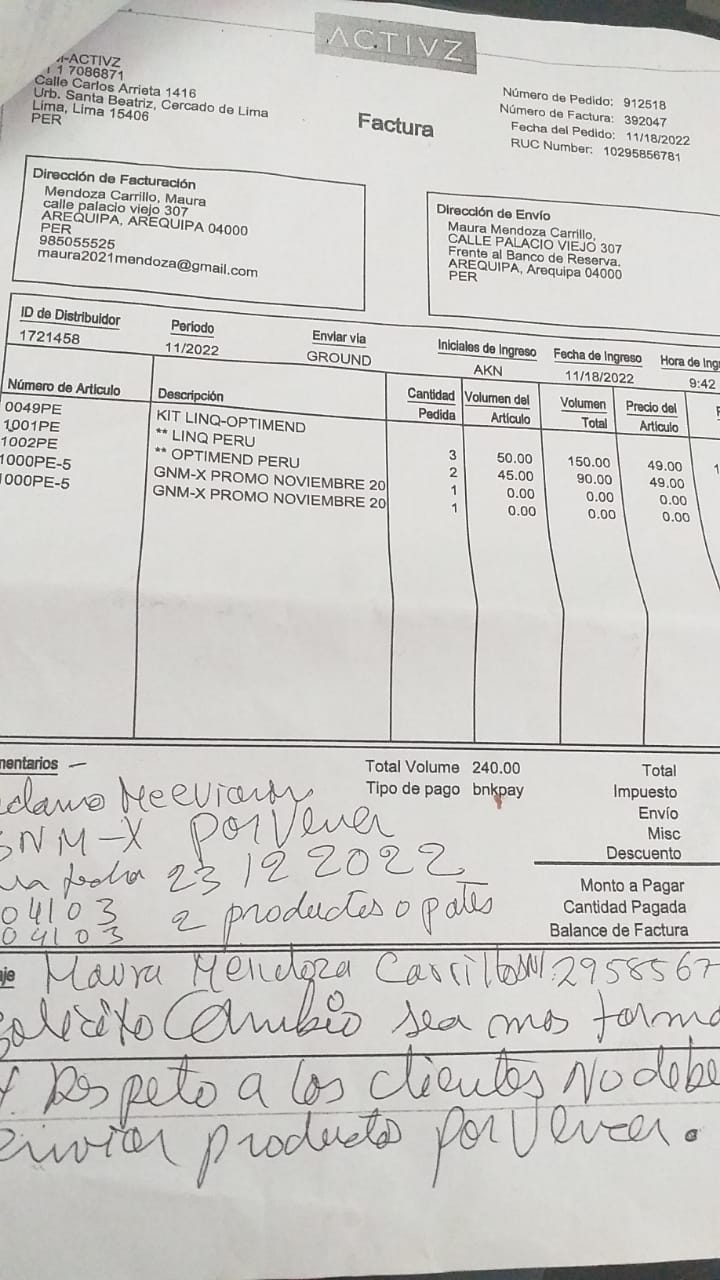 ACTIVZ
-ACTIVZ
1 7086871
Calle Carlos Arrieta 1416
Urb. Santa Beatriz, Cercado de Lima
Lima, Lima 15406
PER
Factura
Número de Pedido: 912518
Número de Factura: 392047
Fecha del Pedido: 11/18/2022
RUC Number: 10295856781
Dirección de Facturación
Mendoza Carrillo, Maura
calle palacio viejo 307
AREQUIPA, AREQUIPA 04000
PER
985055525
maura2021mendoza@gmail.com
Dirección de Envío
Maura Mendoza Carrillo,
CALLE PALACIO VIEJO 307
Frente al Banco de Reserva.
AREQUIPA, Arequipa 04000
PER
ID de Distribuidor Periodo Enviar via Iniciales de Ingreso Fecha de Ingreso Hora de Ing
1721458 11/2022 GROUND AKN 11/18/2022 9:42
Número de Articulo Descripción Cantidad Pedida Volumen del Articulo Volumen Total Precio del Articulo
0049PE KIT LINQ-OPTIMEND 3 50.00 150.00 49.00
1001PE ** LINQ PERU 2 45.00 90.00 49.00
1002PE ** OPTIMEND PERU 1 0.00 0.00 0.00
1000PE-5 GNM-X PROMO NOVIEMBRE 20 1 0.00 0.00 0.00
1000PE-5 GNM-X PROMO NOVIEMBRE 20
mentarios
Total Volume 240.00
Tipo de pago bnkpay
Total
Impuesto
Envío
Misc
Descuento
Monto a Pagar
Cantidad Pagada
Balance de Factura
NM-X por Vencer
23 12 2022
04103 2 productos o pates
04103
aje Maura Mendoza Carrillo 2958567
Solicito Cambio sea mas forma
Respeto a los clientes No debe
enviar producto por Vencer.